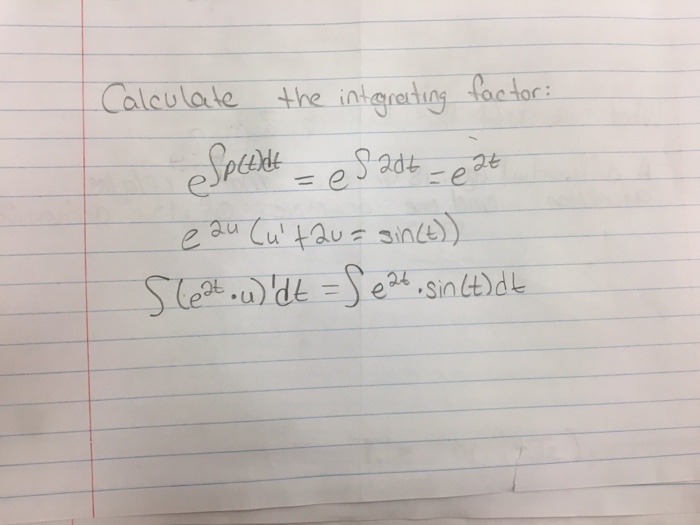 Calculate the integrating factor:
e^∫p(t)dt = e^∫2dt = e^2t
e^2u (u' + 2u = sin(t))
∫(e^2t · u)'dt = ∫e^2t · sin(t)dt